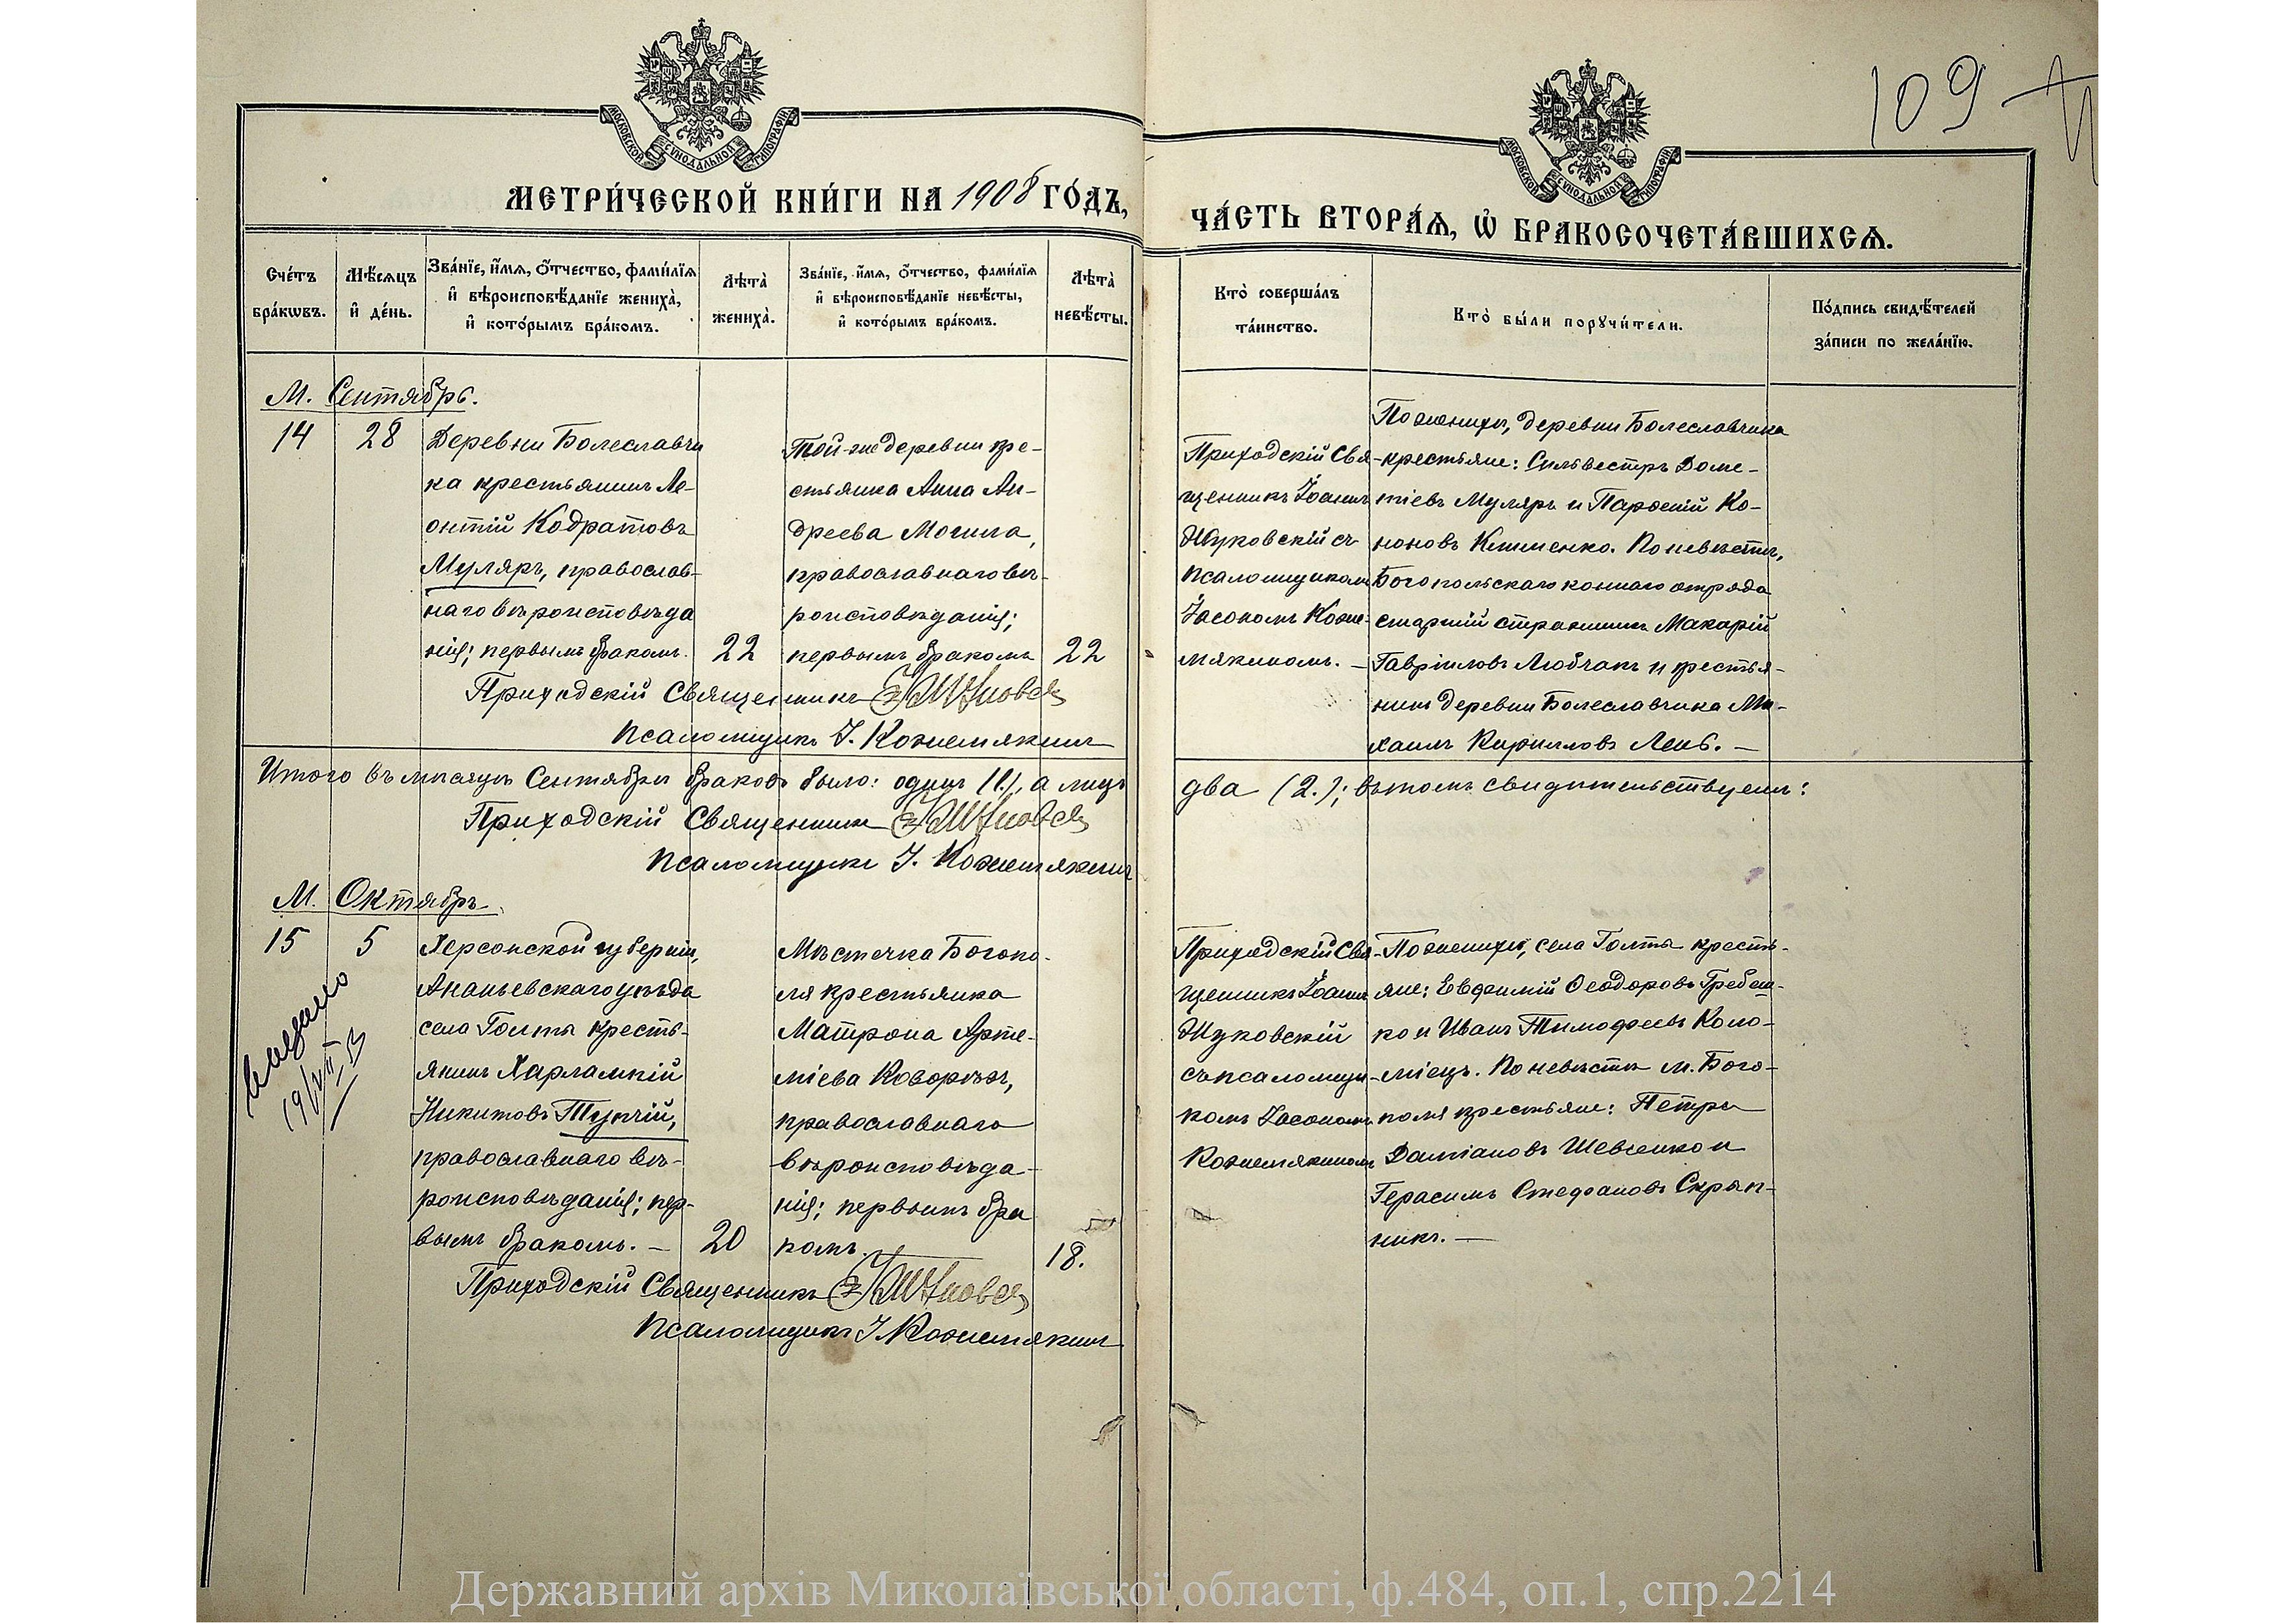 109
МОСКОВСКОЙ СѴНОДАЛЬНОЙ ТИПОГРАФІИ
МОСКОВСКОЙ СѴНОДАЛЬНОЙ ТИПОГРАФІИ
МЕТРИ́ЧЕСКОЙ КНИ́ГИ НА 1908 ГО́ДЪ,
ЧА́СТЬ ВТОРА́Ѧ, Ѡ҆ БРАКОСОЧЕТА́ВШИХСѦ.
Сче́тъ
бра́кѡвъ.
Мѣ́сѧцъ
и҆ де́нь.
Зва́нїе, и҆́мѧ, ѻ҆́тчество, фами́лїѧ
и҆ вѣроисповѣ́данїе жениха̀,
и҆ кото́рымъ бра́комъ.
Лѣта̀
жениха̀.
Зва́нїе, и҆́мѧ, ѻ҆́тчество, фами́лїѧ
и҆ вѣроисповѣ́данїе невѣ́сты,
и҆ кото́рымъ бра́комъ.
Лѣта̀
невѣ́сты.
Кто̀ соверша́лъ
та́инство.
Кто̀ бы́ли порꙋчи́тели.
По́дпись свидѣ́телей
за́писи по жела́нїю.
М. Сентябрь.
14
28
Деревни Болеславчи
ка крестьянинъ Ле-
онтій Кодратовъ
Муляръ, православ-
наго вѣроисповѣда
нія; первымъ бракомъ.
22
Той-же деревни кре-
стьянка Анна Ан-
дреева Могила,
православнаго вѣ-
роисповѣданія;
первымъ бракомъ
22
Приходскій Свя-
щенникъ Іоаннъ
Жуковскій съ
псаломщикомъ
Іасономъ Коже-
мякиномъ. —
По женихѣ, деревни Болеславчика
крестьяне: Сильвестръ Доме-
тіевъ Муляръ и Парѳеній Ко-
ноновъ Клименко. По невѣстѣ,
Богопольскаго коннаго отряда
старшій стражникъ Макарій
Гавріиловъ Любчакъ и крестья-
нинъ деревни Болеславчика Ми-
хаилъ Кирилловъ Ленъ. —
Приходскій Священникъ
Псаломщикъ І. Кожемякинъ
Итого въ мѣсяцѣ Сентябрѣ браковъ было: одинъ (1.), а лицъ
два (2.); въ томъ свидѣтельствуемъ:
Приходскій Священникъ
Псаломщикъ І. Кожемякинъ
М. Октябрь.
15
5
Выдано
19/VII
Херсонской губерніи,
Ананьевскаго уѣзда
села Голты кресть-
янинъ Харлампій
Никитовъ Тупчій,
православнаго вѣ-
роисповѣданія; пер-
вымъ бракомъ. —
20
Мѣстечка Богопо-
ля крестьянка
Матрона Арте-
міева
православнаго
вѣроисповѣда-
нія; первымъ бра
комъ.
18.
Приходскій Свя-
щенникъ Іоаннъ
Жуковскій
съ псаломщи-
комъ Іасономъ
Кожемякиномъ
По женихѣ, села Голты кресть-
яне: Евфимій Ѳеодоровъ Гребен-
ко и Иванъ Тимофеевъ Коло-
міецъ. По невѣстѣ м. Бого-
поля крестьяне: Петръ
Даміановъ Шевченко и
Герасимъ Стефановъ Скрып-
никъ. —
Приходскій Священникъ
Псаломщикъ І. Кожемякинъ
Державний архів Миколаївської області, ф.484, оп.1, спр.2214